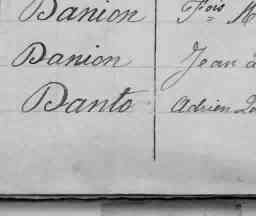 Danion Fois M
Danion Jean
Danto Adrien